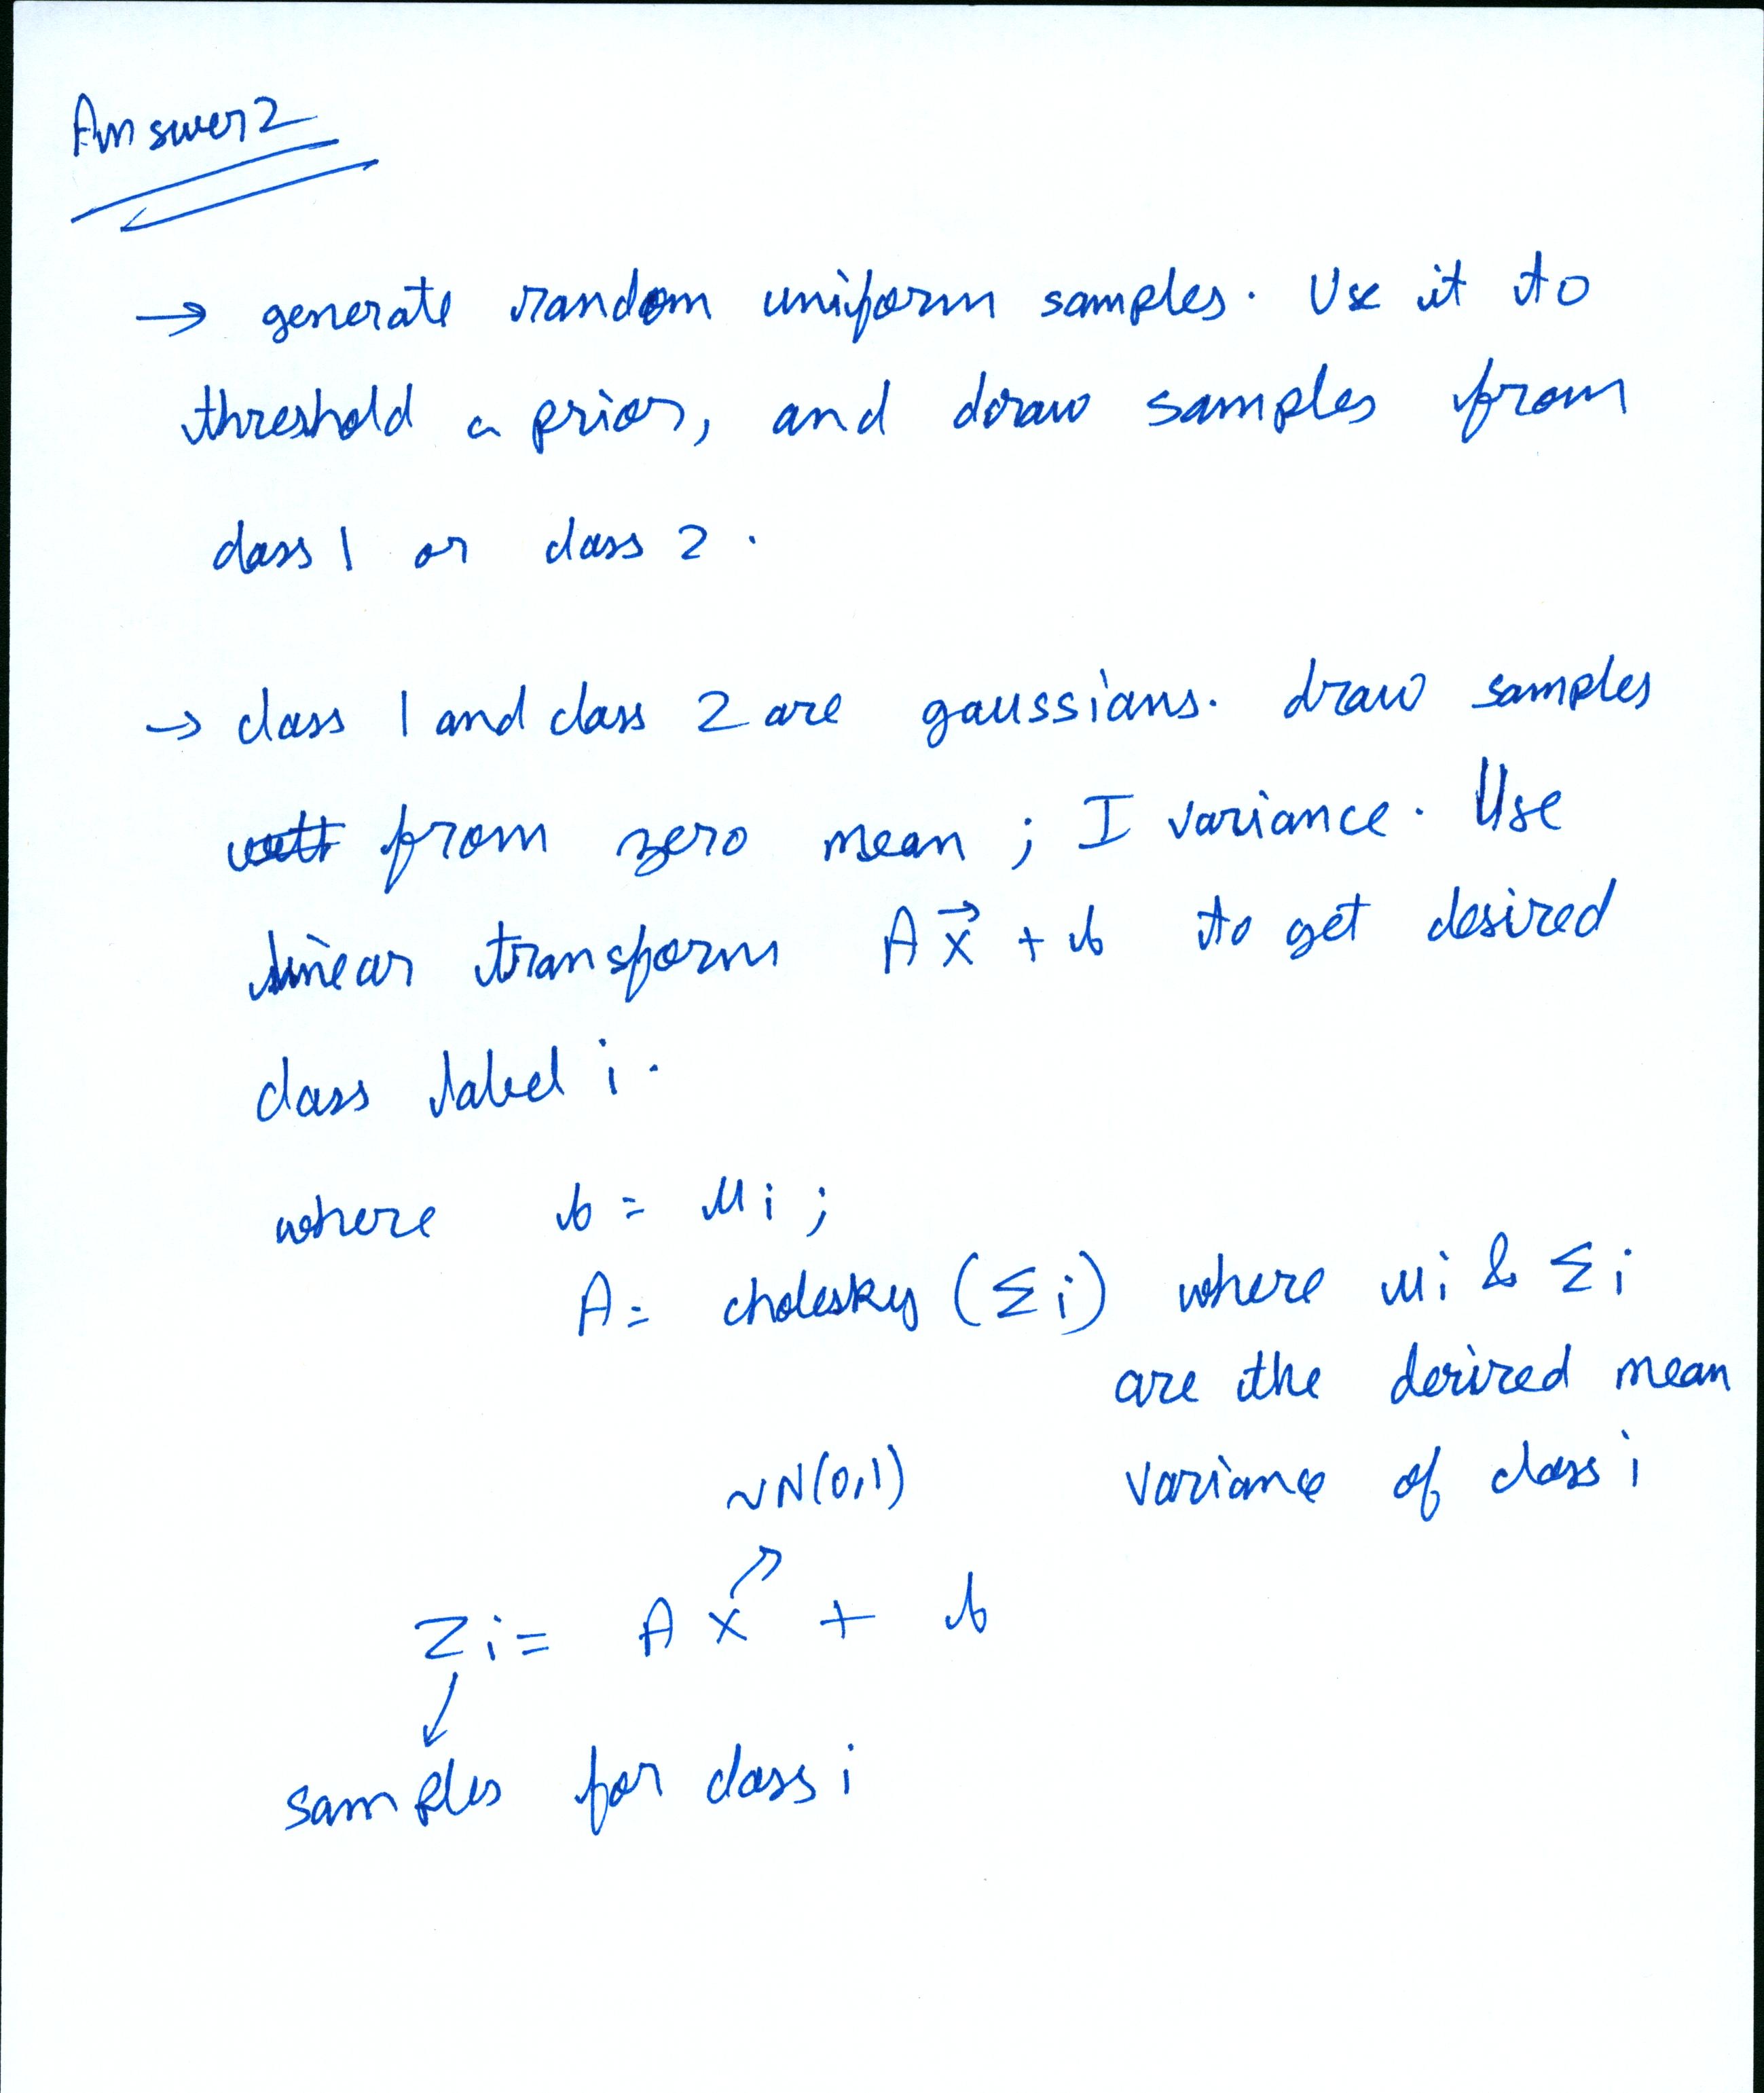 Answer 2
→ generate random uniform samples. Use it to
threshold a prior, and draw samples from
class 1 or class 2.
→ class 1 and class 2 are gaussians. draw samples
from zero mean ; I variance. Use
linear transform A x⃗ + b to get desired
class label i.
where b = μi ;
A = cholesky (Σi) where μi & Σi
are the desired mean
~N(0,1) variance of class i
Zi = A x + b
samples for class i